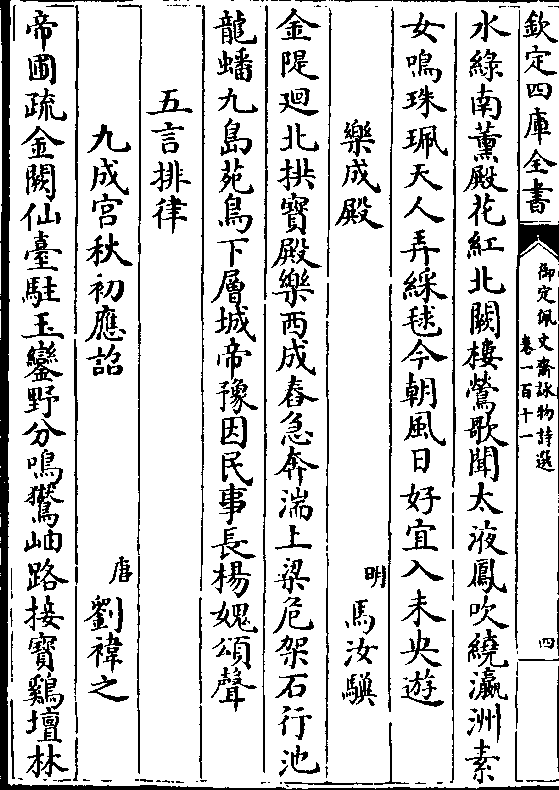 欽定四庫全書
御定佩文齋詠物詩選
卷一百十一
四
水綠南薰殿花紅北闕樓鶯歌聞太液鳳吹繞瀛洲素
女鳴珠珮天人弄綵毬今朝風日好宜入未央遊
樂成殿
明
馬汝驥
金隄廻北拱寶殿樂西成舂急奔湍上梁危架石行池
龍蟠九島苑鳥下層城帝豫因民事長楊媿頌聲
五言排律
九成宮秋初應詔
唐
劉禕之
帝圃疏金闕仙臺駐玉鑾野分鳴鷟岫路接寶鷄壇林